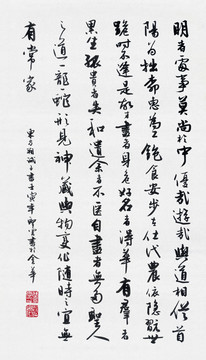 明者處事莫尚於中優哉游哉與道相從首
陽為拙柳惠為工飽食安步以仕代農依隱翫世
詭時不逢是故才盡者身危好名者得華有群者
累生孤貴者失和遺余者不匱自盡者無多聖人
之道一龍一蛇形見神藏與物變化隨時之宜無
有常家
東方朔誡子書壬寅年 書於金華